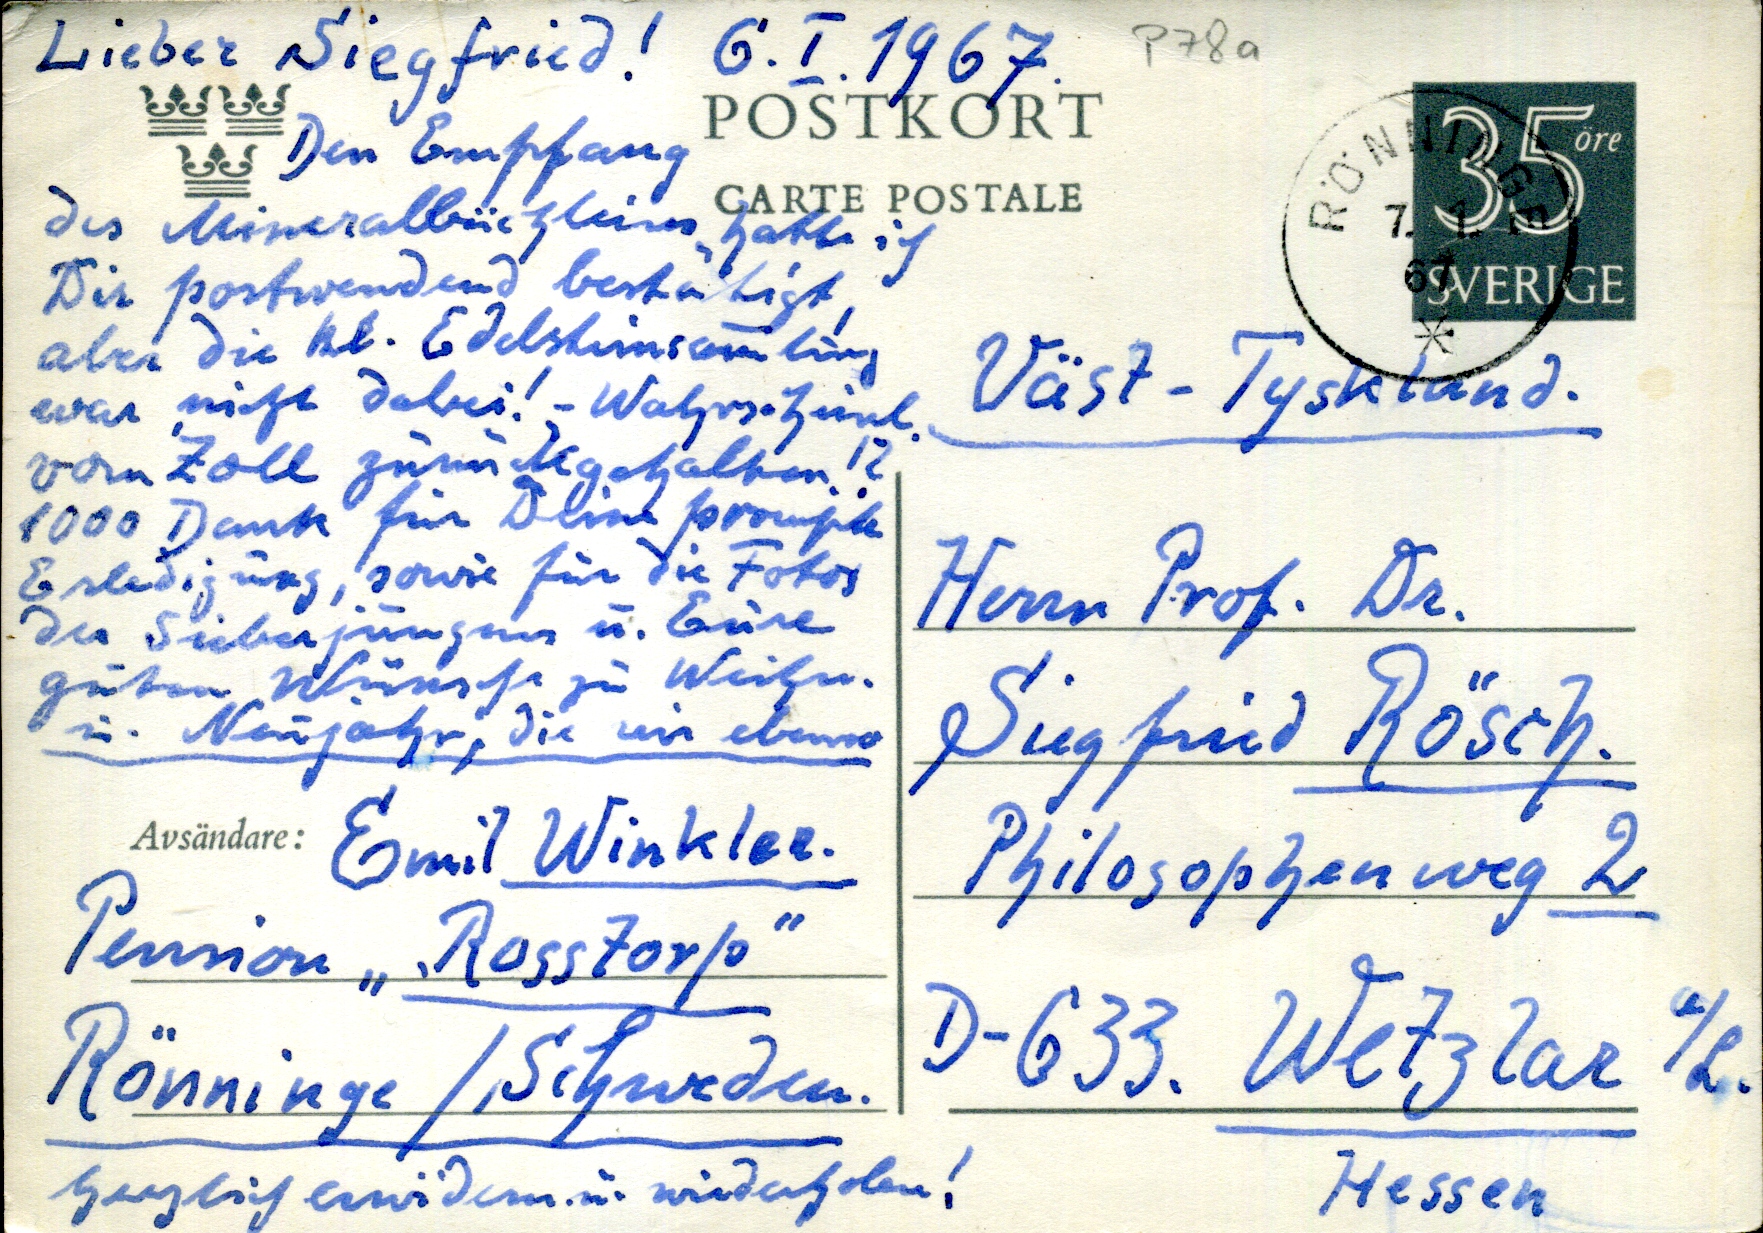 Lieber Siegfried! 6.I.1967.
P78a
POSTKORT
CARTE POSTALE
35 öre
SVERIGE
RÖNNINGE
7. 1.
67
Den Empfang
des Mineralbüchleins hatte ich
Dir postwendend bestätigt,
aber die kl. Edelsteinsammlung
war nicht dabei! - Wahrscheinl.
vom Zoll zurückgehalten!?
1000 Dank für Deine prompte
Erledigung, sowie für die Fotos
der Sieberjungens u. Eure
guten Wünsche zu Weihn.
u. Neujahr, die wir ebenso
Avsändare: Emil Winkler.
Pension „Rosstorp"
Rönninge / Schweden.
herzlich erwidern u. wiederholen!
Väst-Tyskland.
Herrn Prof. Dr.
Siegfried Rösch.
Philosophenweg 2
D-633. Wetzlar a/L.
Hessen